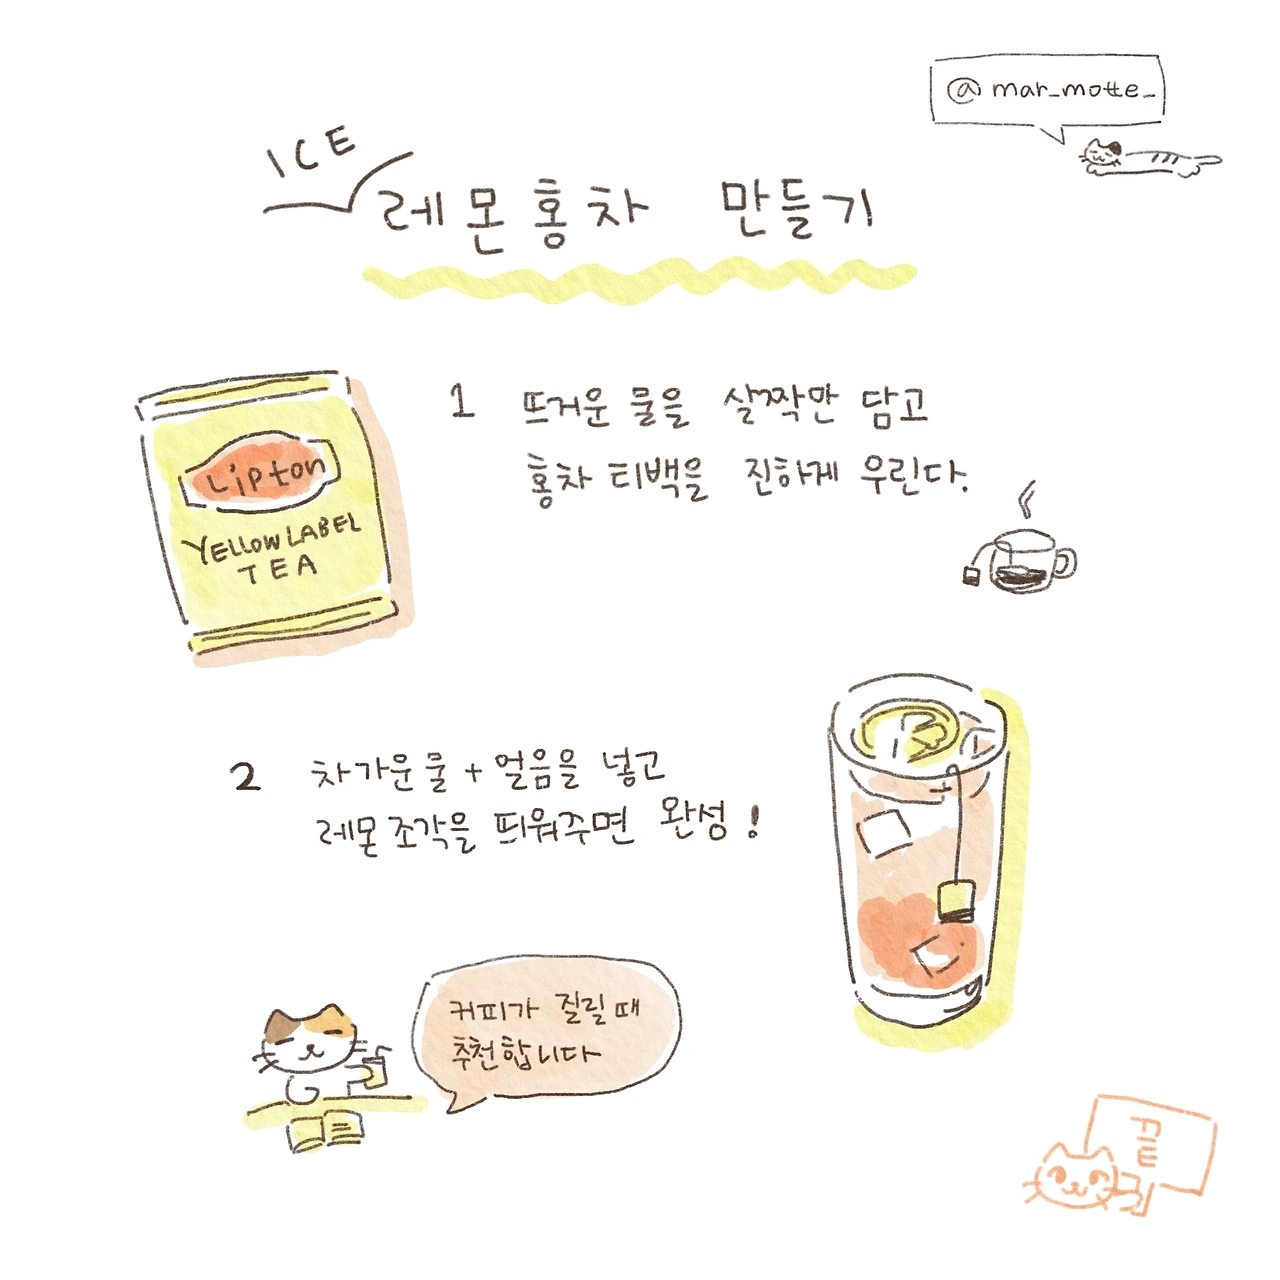 @mar_motte_
ICE
레몬홍차 만들기
Lipton
YELLOW LABEL
TEA
1 뜨거운 물을 살짝만 담고
홍차 티백을 진하게 우린다.
2 차가운 물 + 얼음을 넣고
레몬 조각을 띄워주면 완성!
커피가 질릴 때
추천합니다
끝